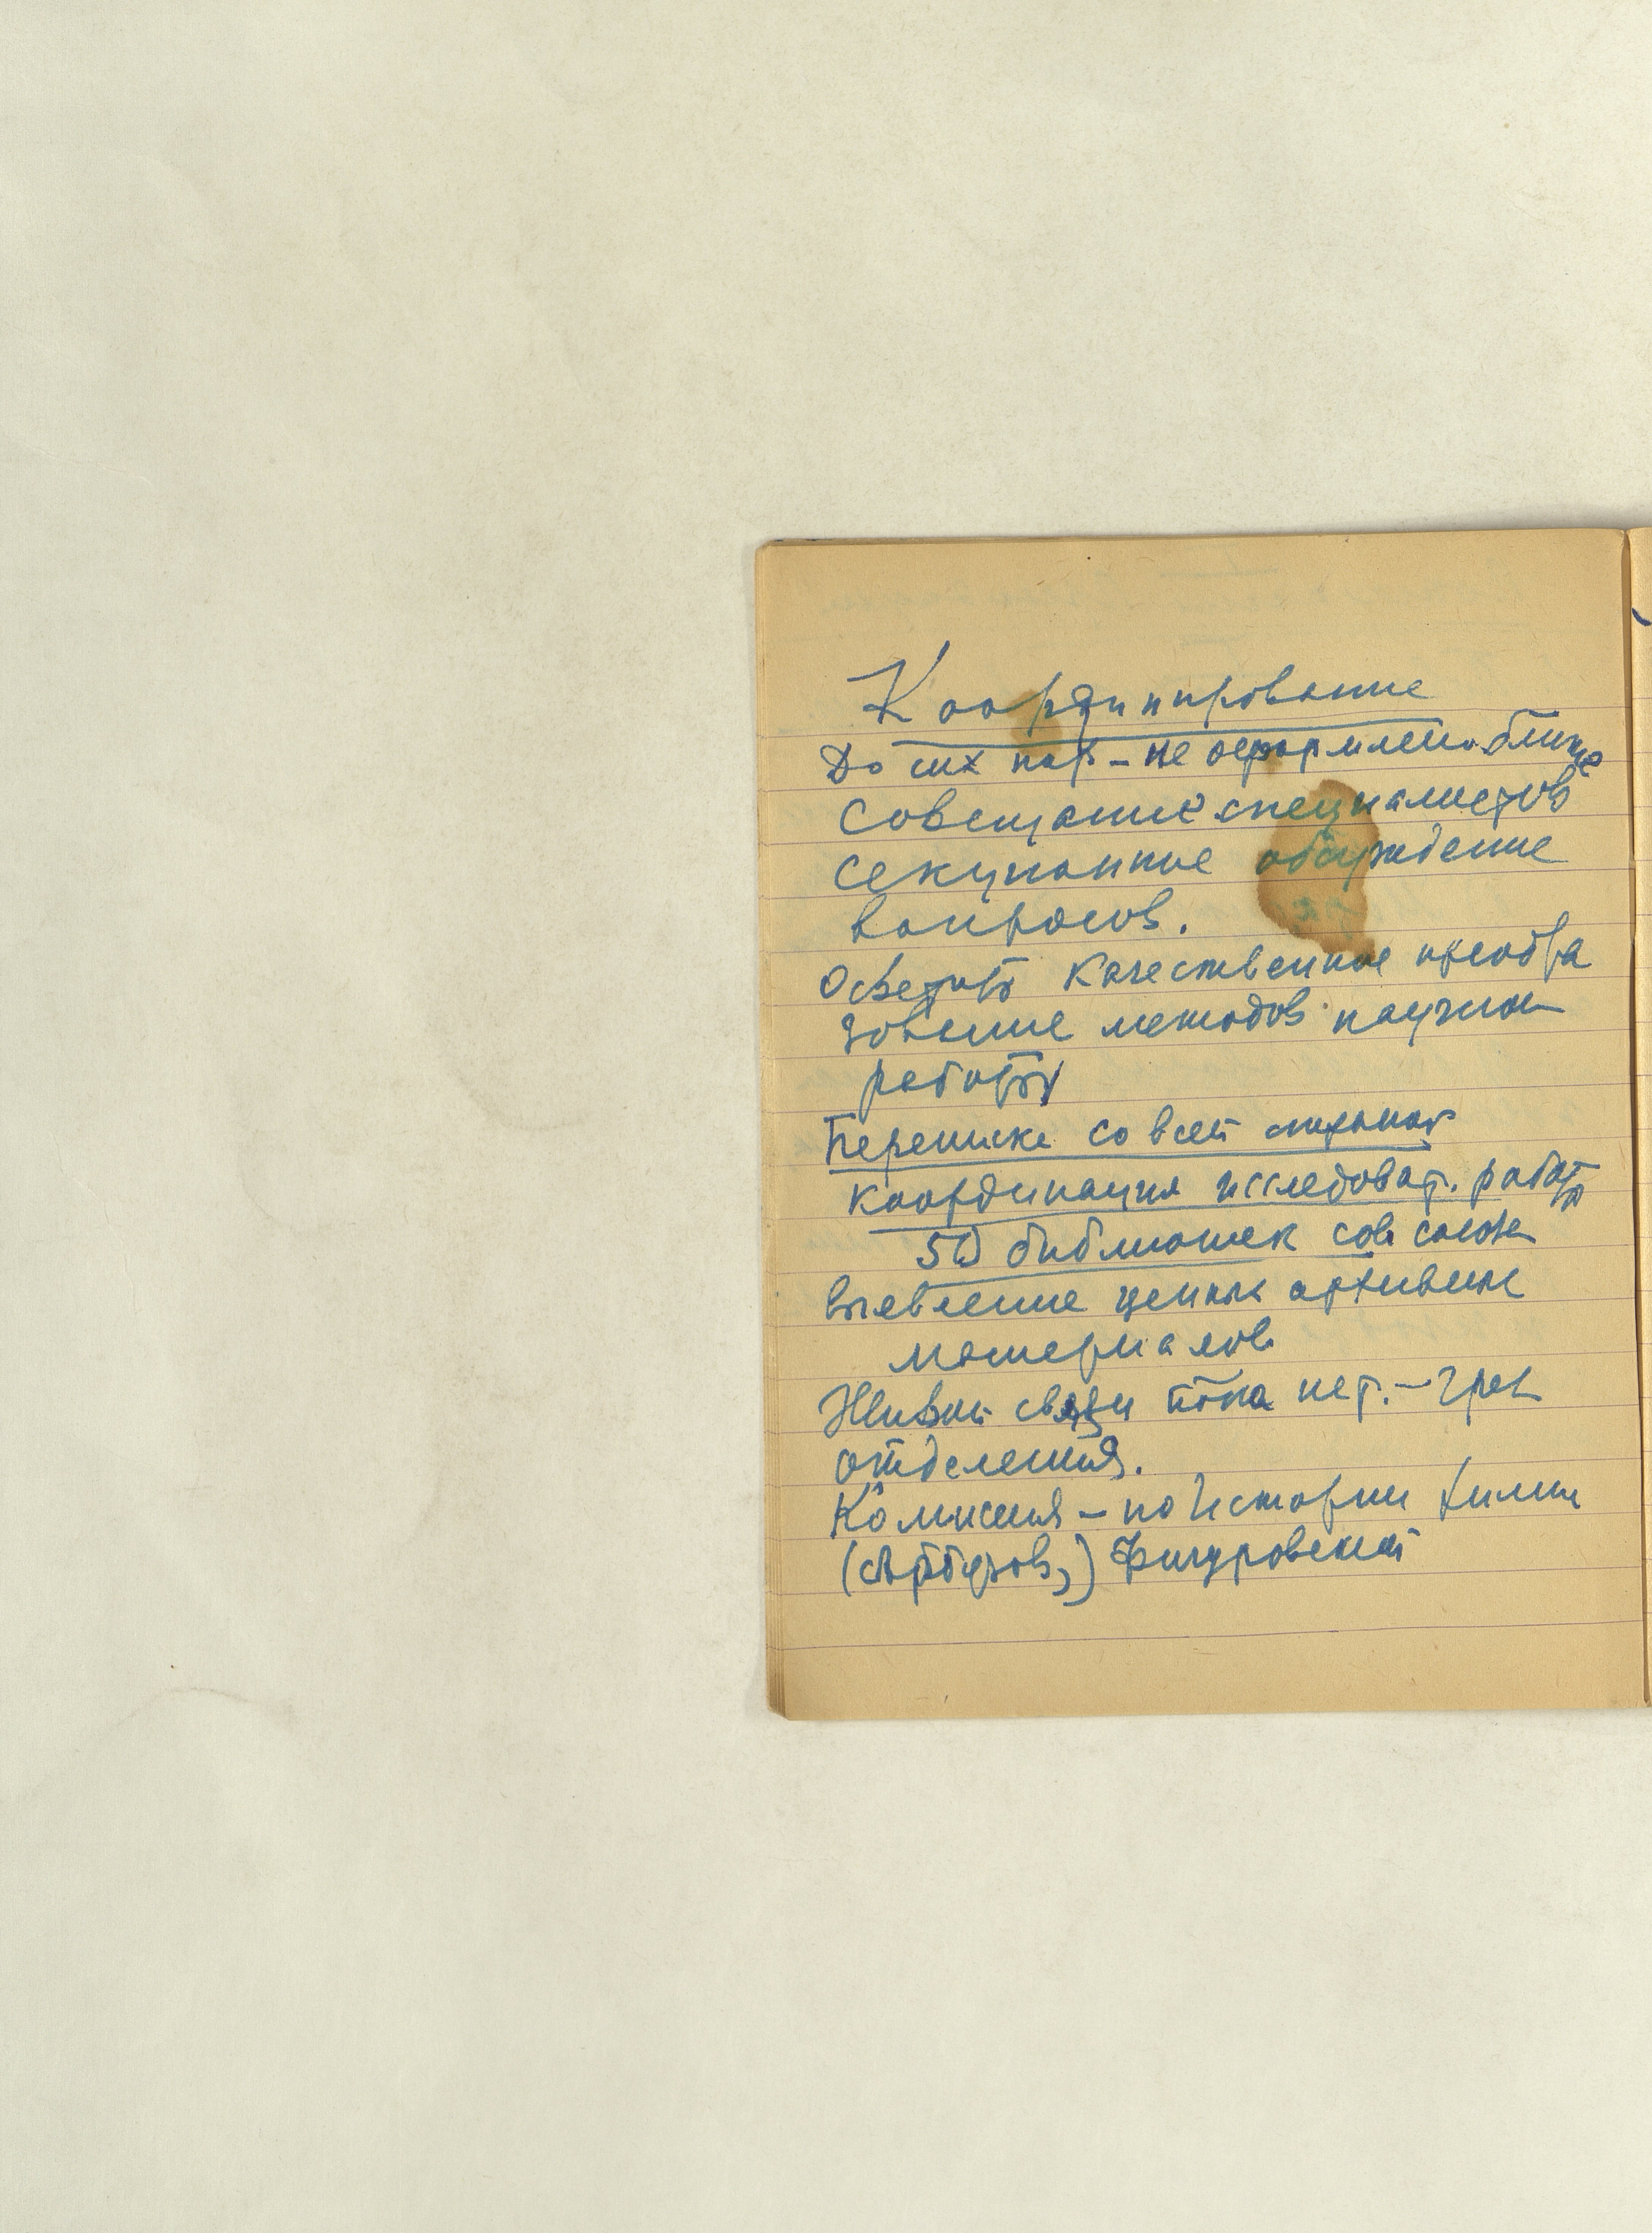 Координирование
До сих пор – не оформлено
Совещание специалистов
Секционное обсуждение
вопросов.
Осветить качественное преобра
зование методов научной
работы
Переписка со всей страной
координация исследоват. работ
50 библиотек сов союза
выявление ценных архивных
материалов
Живой связи пока нет. –
отделения.
Комиссия – по Истории химии
(Арбузов,) Фигуровский